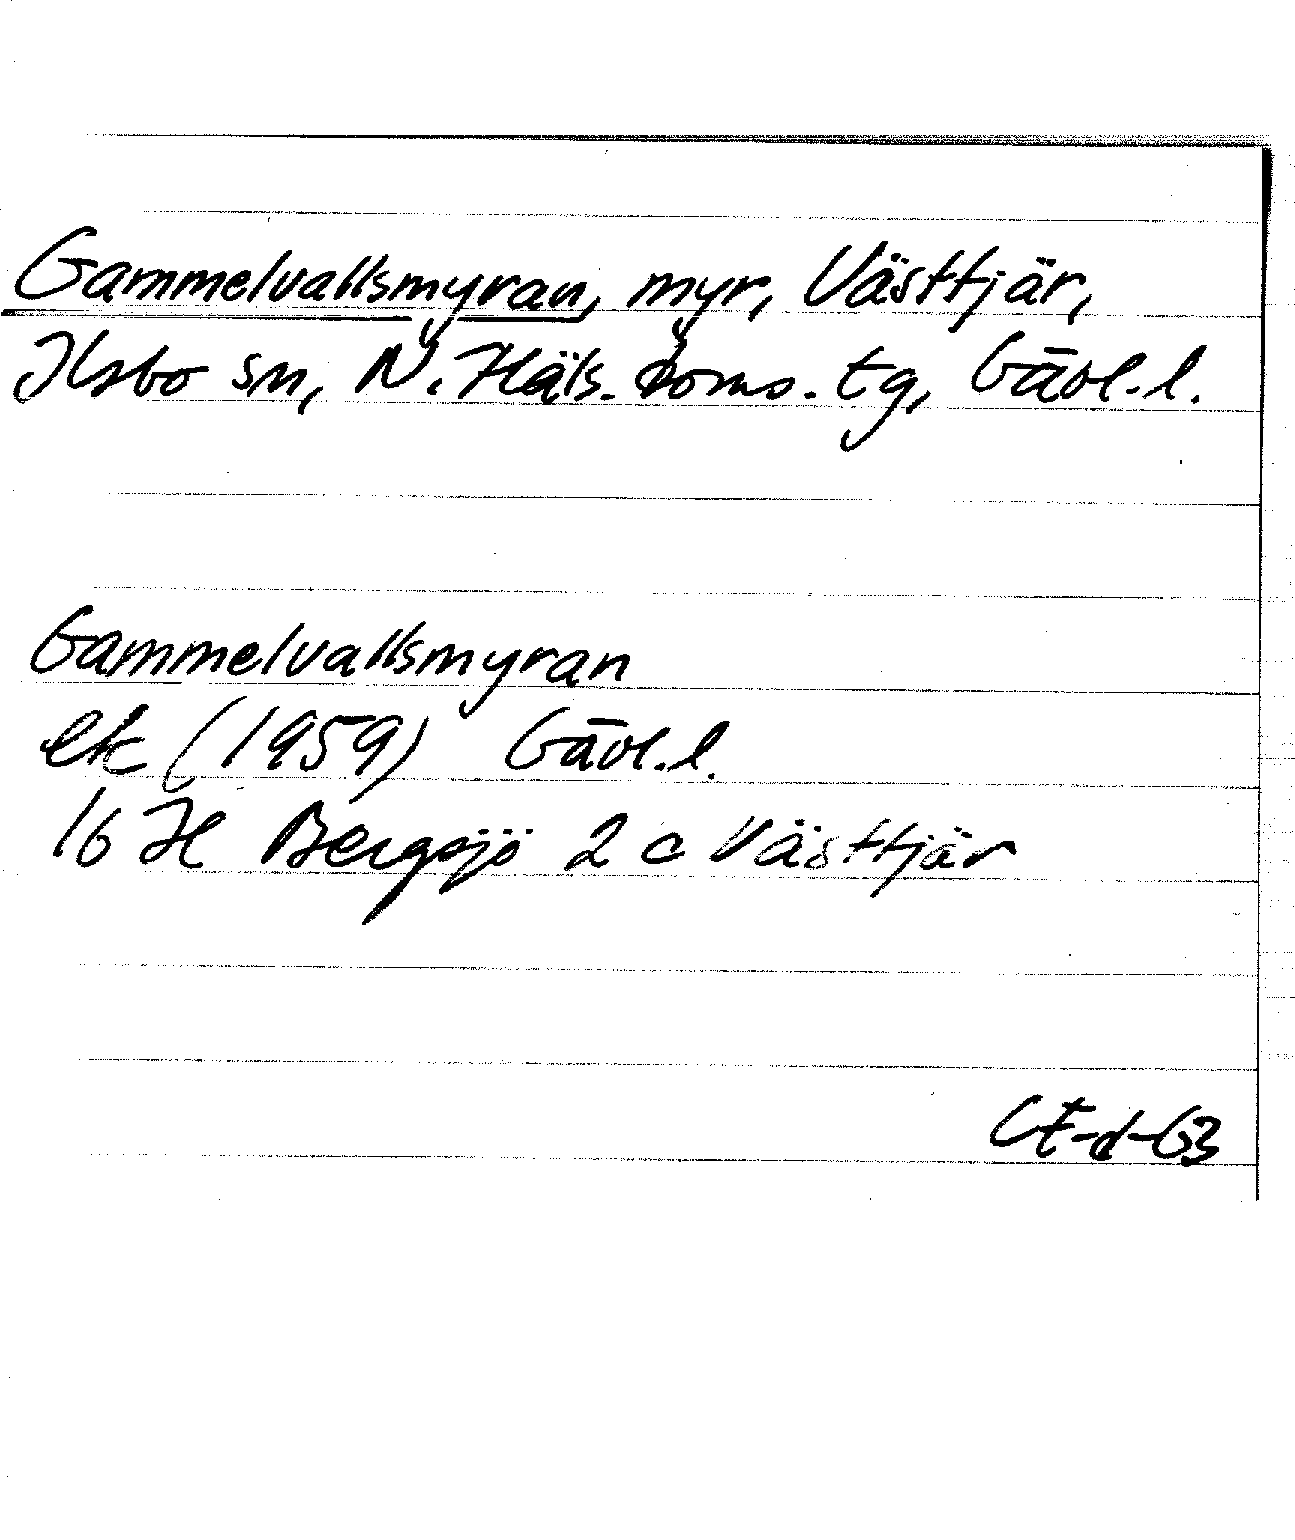 Gammelvallsmyran, myr, Västtjär,
Ilsbo sn, N. Häls. doms. tg, Gävl. l.
Gammelvallsmyran
ek (1959) Gävl. l.
16 H Bergsjö 2 c Västtjär
CE-d-63